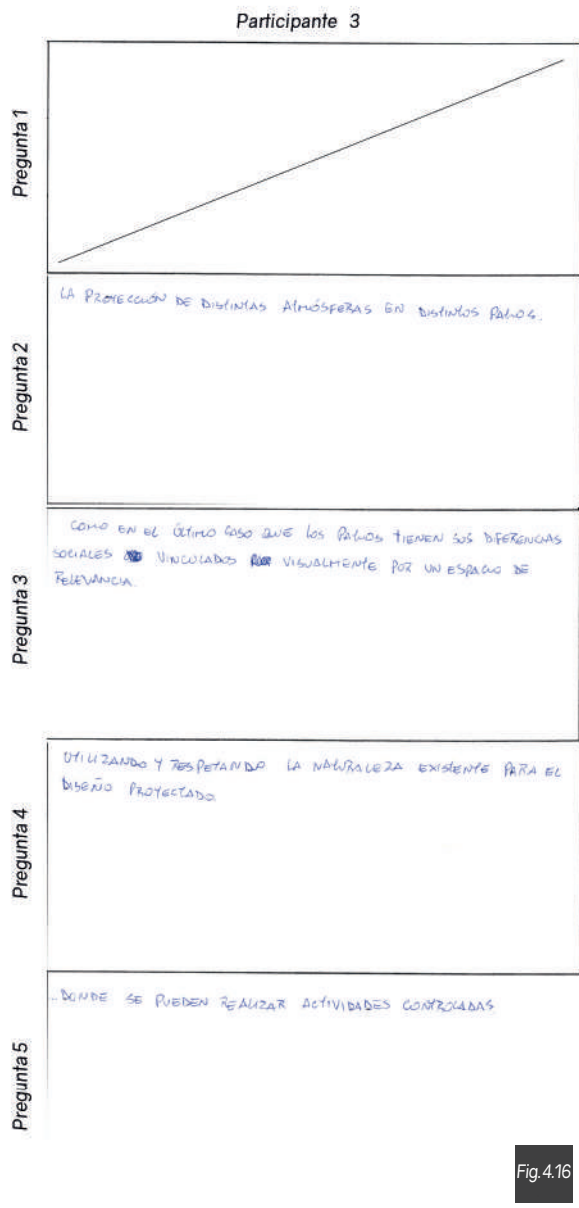 Participante 3
Pregunta 1
Pregunta 2
LA PROYECCIÓN DE DISTINTAS ATMÓSFERAS EN DISTINTOS PATIOS.
Pregunta 3
COMO EN EL ÚLTIMO CASO QUE LOS PATIOS TIENEN SUS DIFERENCIAS
SOCIALES VINCULADOS VISUALMENTE POR UN ESPACIO DE
RELEVANCIA.
Pregunta 4
UTILIZANDO Y RESPETANDO LA NATURALEZA EXISTENTE PARA EL
DISEÑO PROYECTADO.
Pregunta 5
..DONDE SE PUEDEN REALIZAR ACTIVIDADES CONTROLADAS
Fig.4.16